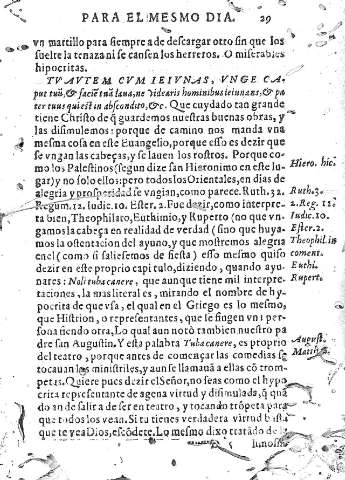 PARA EL MESMO DIA. 29
vn martillo para siempre a de descargar otro sin que los
suelte la tenaza ni se cansen los herreros. O miserables
hipocritas.
TV AVTEM CVM IEIVNAS, VNGE CA-
put tuũ, & faciẽ tuã laua, ne videaris hominibus ieiunans, & pa
ter tuus qui est in abscondito, &c. Que cuydado tan grande
tiene Christo de q̃ guardemos nuestras buenas obras, y
las disimulemos: porque de camino nos manda vna
mesma cosa en este Euangelio, porque esso es dezir que
se vngan las cabeças, y se lauen los rostros. Porque co-
mo los Palestinos (segun dize san Hieronimo en este lu-
gar) y no solo ellos: pero todos los Orientales, en dias de
alegria y prosperidad se vngian, como parece. Ruth. 3. 2.
Regum. 12. Iudic. 10. Ester. 2. Fue dezir, como interpre-
ta bien, Theophilato, Euthimio, y Ruperto (no que vn-
gamos la cabeça en realidad de verdad (sino que huya-
mos la ostentacion del ayuno, y que mostremos alegria
en el (como si saliesemos de fiesta) esso mesmo quiso
dezir en este proprio capitulo, diziendo, quando ayu-
nares: Noli tuba canere, que aunque tiene mil interpre-
taciones, la mas literal es, mirando el nombre de hy-
pocrita de que vsa, el qual en el Griego es lo mesmo,
que Histrion, o representantes, que se fingen vn i per-
sona siendo otra, Lo qual aun notò tambien nuestro pa
dre san Augustin. Y esta palabra Tuba canere, es proprio
del teatro, porque antes de començar las comedias se
tocauan los ministriles, y aun se llamauã a ellas cõ trom-
petas. Quiere pues dezir el Señor, no seas como el hypo
crita representante de agena virtud y disimulada, q̃ quã
do an de salir a de ser en teatro, y tocando trõpeta para
que todos los vean. Si tu tienes verdadera virtud basta
que te vea Dios, escõdete. Lo mesmo dixo tratãdo de la
limosna
Hiero. hic.
Ruth. 3.
2. Reg. 12
Iudic. 10
Ester. 2
Theophil. in
coment.
Euthi.
Rupert.
August.
Matth.